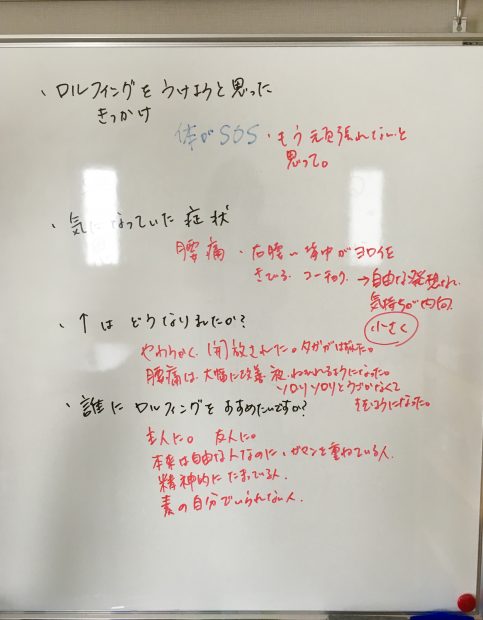 ・ロルフィングをうけようと思った
きっかけ
体がSOS・もう頑張れないと
思って。
・気になっていた症状
腰痛・右腹い 背中がヨロイを
きている コーチョク →自由な発想なし
気持ちが内向
小さく
・↑はどうなりましたか?
やわらかく、開放された。タガがはずれた。
腰痛は大幅に改善 夜、ねむれるようになった。
ソロリソロリとうごかなくて
もよいようになった。
・誰にロルフィングをおすすめしたいですか?
主人に。 友人に。
本来は自由な人なのに、ガマンを重ねている人。
精神的にたまっている人
素の自分でいられない人。